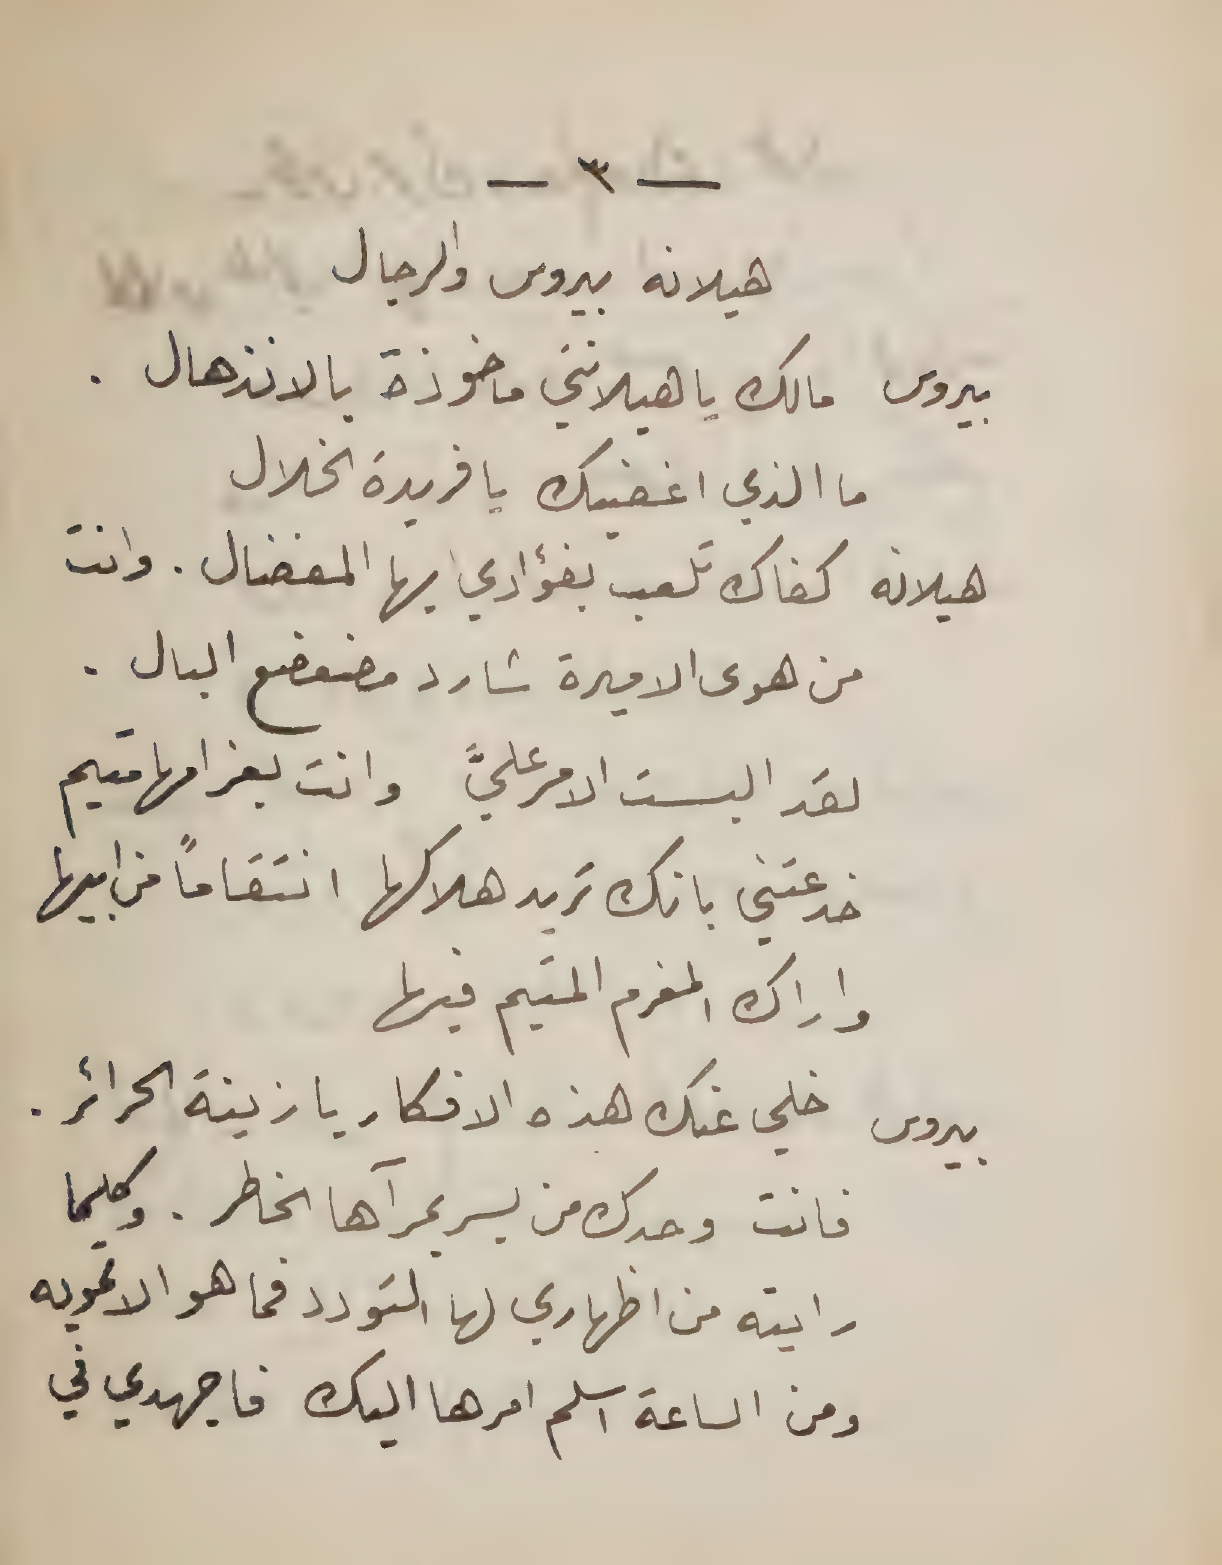 — ٣ —
هيلانه بيروس والرجال
بيروس مالك يا هيلانتي ماخوذة بالانذهال .
ما الذي اغضبك يا فريدة الخلال
هيلانه كفاك تلعب بفؤادي ايها المفضال . وانت
من هوى الاميرة شارد مضعضع البال .
لقد البست الامر عليَّ وانت بغرامها متيم
خدعتني بانك تريد هلاكها انتقاماً من ابيها
واراك المغرم المتيم فيها
بيروس خلي عنك هذه الافكار يا زينة الحرائر .
فانت وحدك من يسر بمرآها الخاطر . وكلما
رايته من اظهاري لها التودد فما هو الا تمويه
ومن الساعة اسلم امرها اليك فاجهدي في